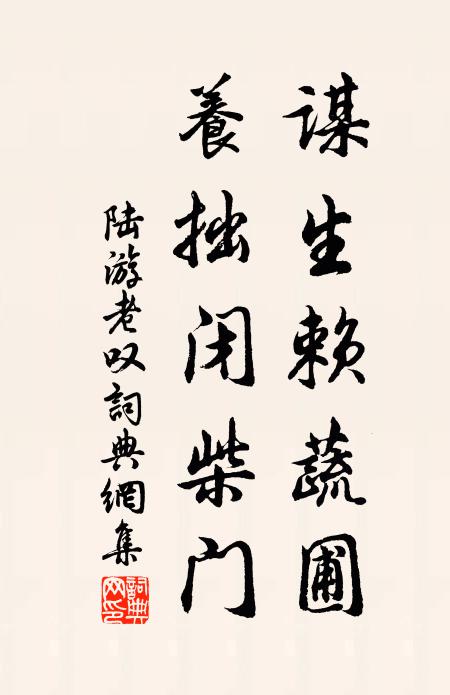 谋生赖蔬圃
養拙闭柴门
陆游老叹詞典網集
詞典网印